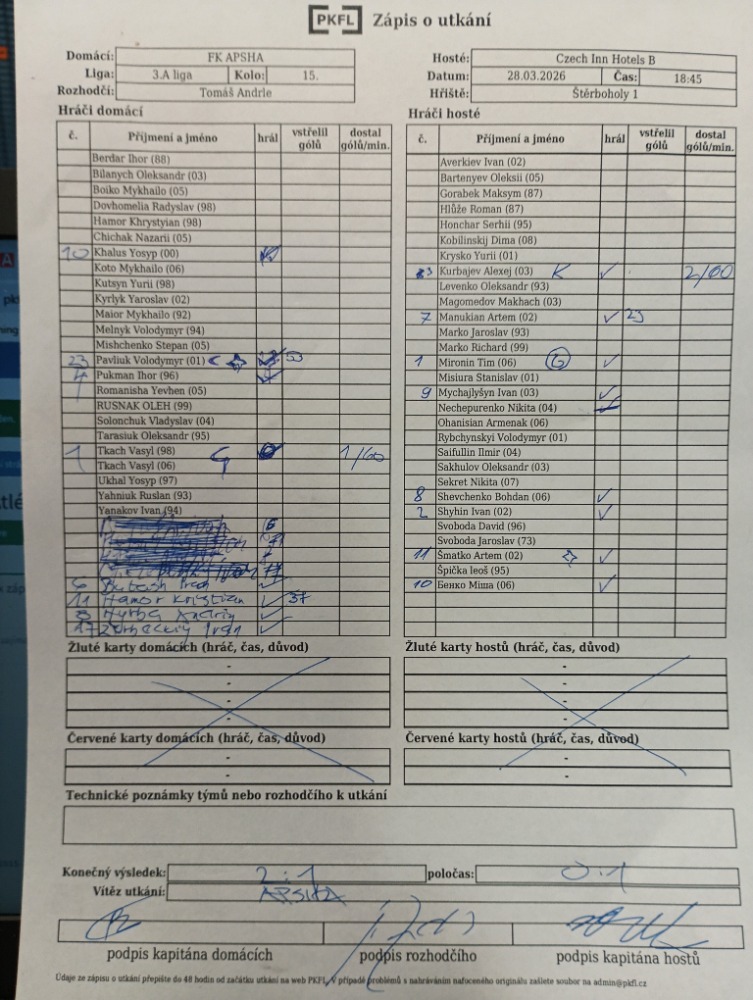 PKFL Zápis o utkání
Domácí: FK APSHA
Liga: 3.A liga Kolo: 15.
Rozhodčí: Tomáš Andrle
Hosté: Czech Inn Hotels B
Datum: 28.03.2026 Čas: 18:45
Hřiště: Štěrboholy 1
Hráči domácí
č. Příjmení a jméno hrál vstřelil gólů dostal gólů/min.
Berdar Ihor (88)
Bilanych Oleksandr (03)
Boiko Mykhailo (05)
Dovhomelia Radyslav (98)
Hamor Khrystyian (98)
Chichak Nazarii (05)
10 Khalus Yosyp (00)
Koto Mykhailo (06)
Kutsyn Yurii (98)
Kyrlyk Yaroslav (02)
Maior Mykhailo (92)
Melnyk Volodymyr (94)
Mishchenko Stepan (05)
23 Pavliuk Volodymyr (01) 53
4 Pukman Ihor (96)
Romanisha Yevhen (05)
RUSNAK OLEH (99)
Solonchuk Vladyslav (04)
Tarasiuk Oleksandr (95)
1 Tkach Vasyl (98) G 1/60
Tkach Vasyl (06)
Ukhal Yosyp (97)
Yahniuk Ruslan (93)
Yanakov Ivan (94)
6
11 Hamor Kristian ✓ 37
✓
17 ✓
Hráči hosté
č. Příjmení a jméno hrál vstřelil gólů dostal gólů/min.
Averkiev Ivan (02)
Bartenyev Oleksii (05)
Gorabek Maksym (87)
Hlůže Roman (87)
Honchar Serhii (95)
Kobilinskij Dima (08)
Krysko Yurii (01)
Kurbajev Alexej (03) K ✓ 2/60
Levenko Oleksandr (93)
Magomedov Makhach (03)
7 Manukian Artem (02) ✓ 23
Marko Jaroslav (93)
Marko Richard (99)
1 Mironin Tim (06) G ✓
Misiura Stanislav (01)
9 Mychajlyšyn Ivan (03) ✓
Nechepurenko Nikita (04)
Ohanisian Armenak (06)
Rybchynskyi Volodymyr (01)
Saifullin Ilmir (04)
Sakhulov Oleksandr (03)
Sekret Nikita (07)
8 Shevchenko Bohdan (06) ✓
2 Shyhin Ivan (02) ✓
Svoboda David (96)
Svoboda Jaroslav (73)
11 Šmatko Artem (02) ✓
Špička leoš (95)
10 Бенко Міша (06) ✓
Žluté karty domácích (hráč, čas, důvod)
-
-
-
-
Červené karty domácích (hráč, čas, důvod)
-
-
Žluté karty hostů (hráč, čas, důvod)
-
-
-
-
Červené karty hostů (hráč, čas, důvod)
-
-
Technické poznámky týmů nebo rozhodčího k utkání
Konečný výsledek: 2:1 poločas: 0:1
Vítěz utkání: APSHA
podpis kapitána domácích podpis rozhodčího podpis kapitána hostů
Údaje ze zápisu o utkání přepište do 48 hodin od začátku utkání na web PKFL. V případě problémů s nahráváním nafoceného originálu zašlete soubor na admin@pkfl.cz